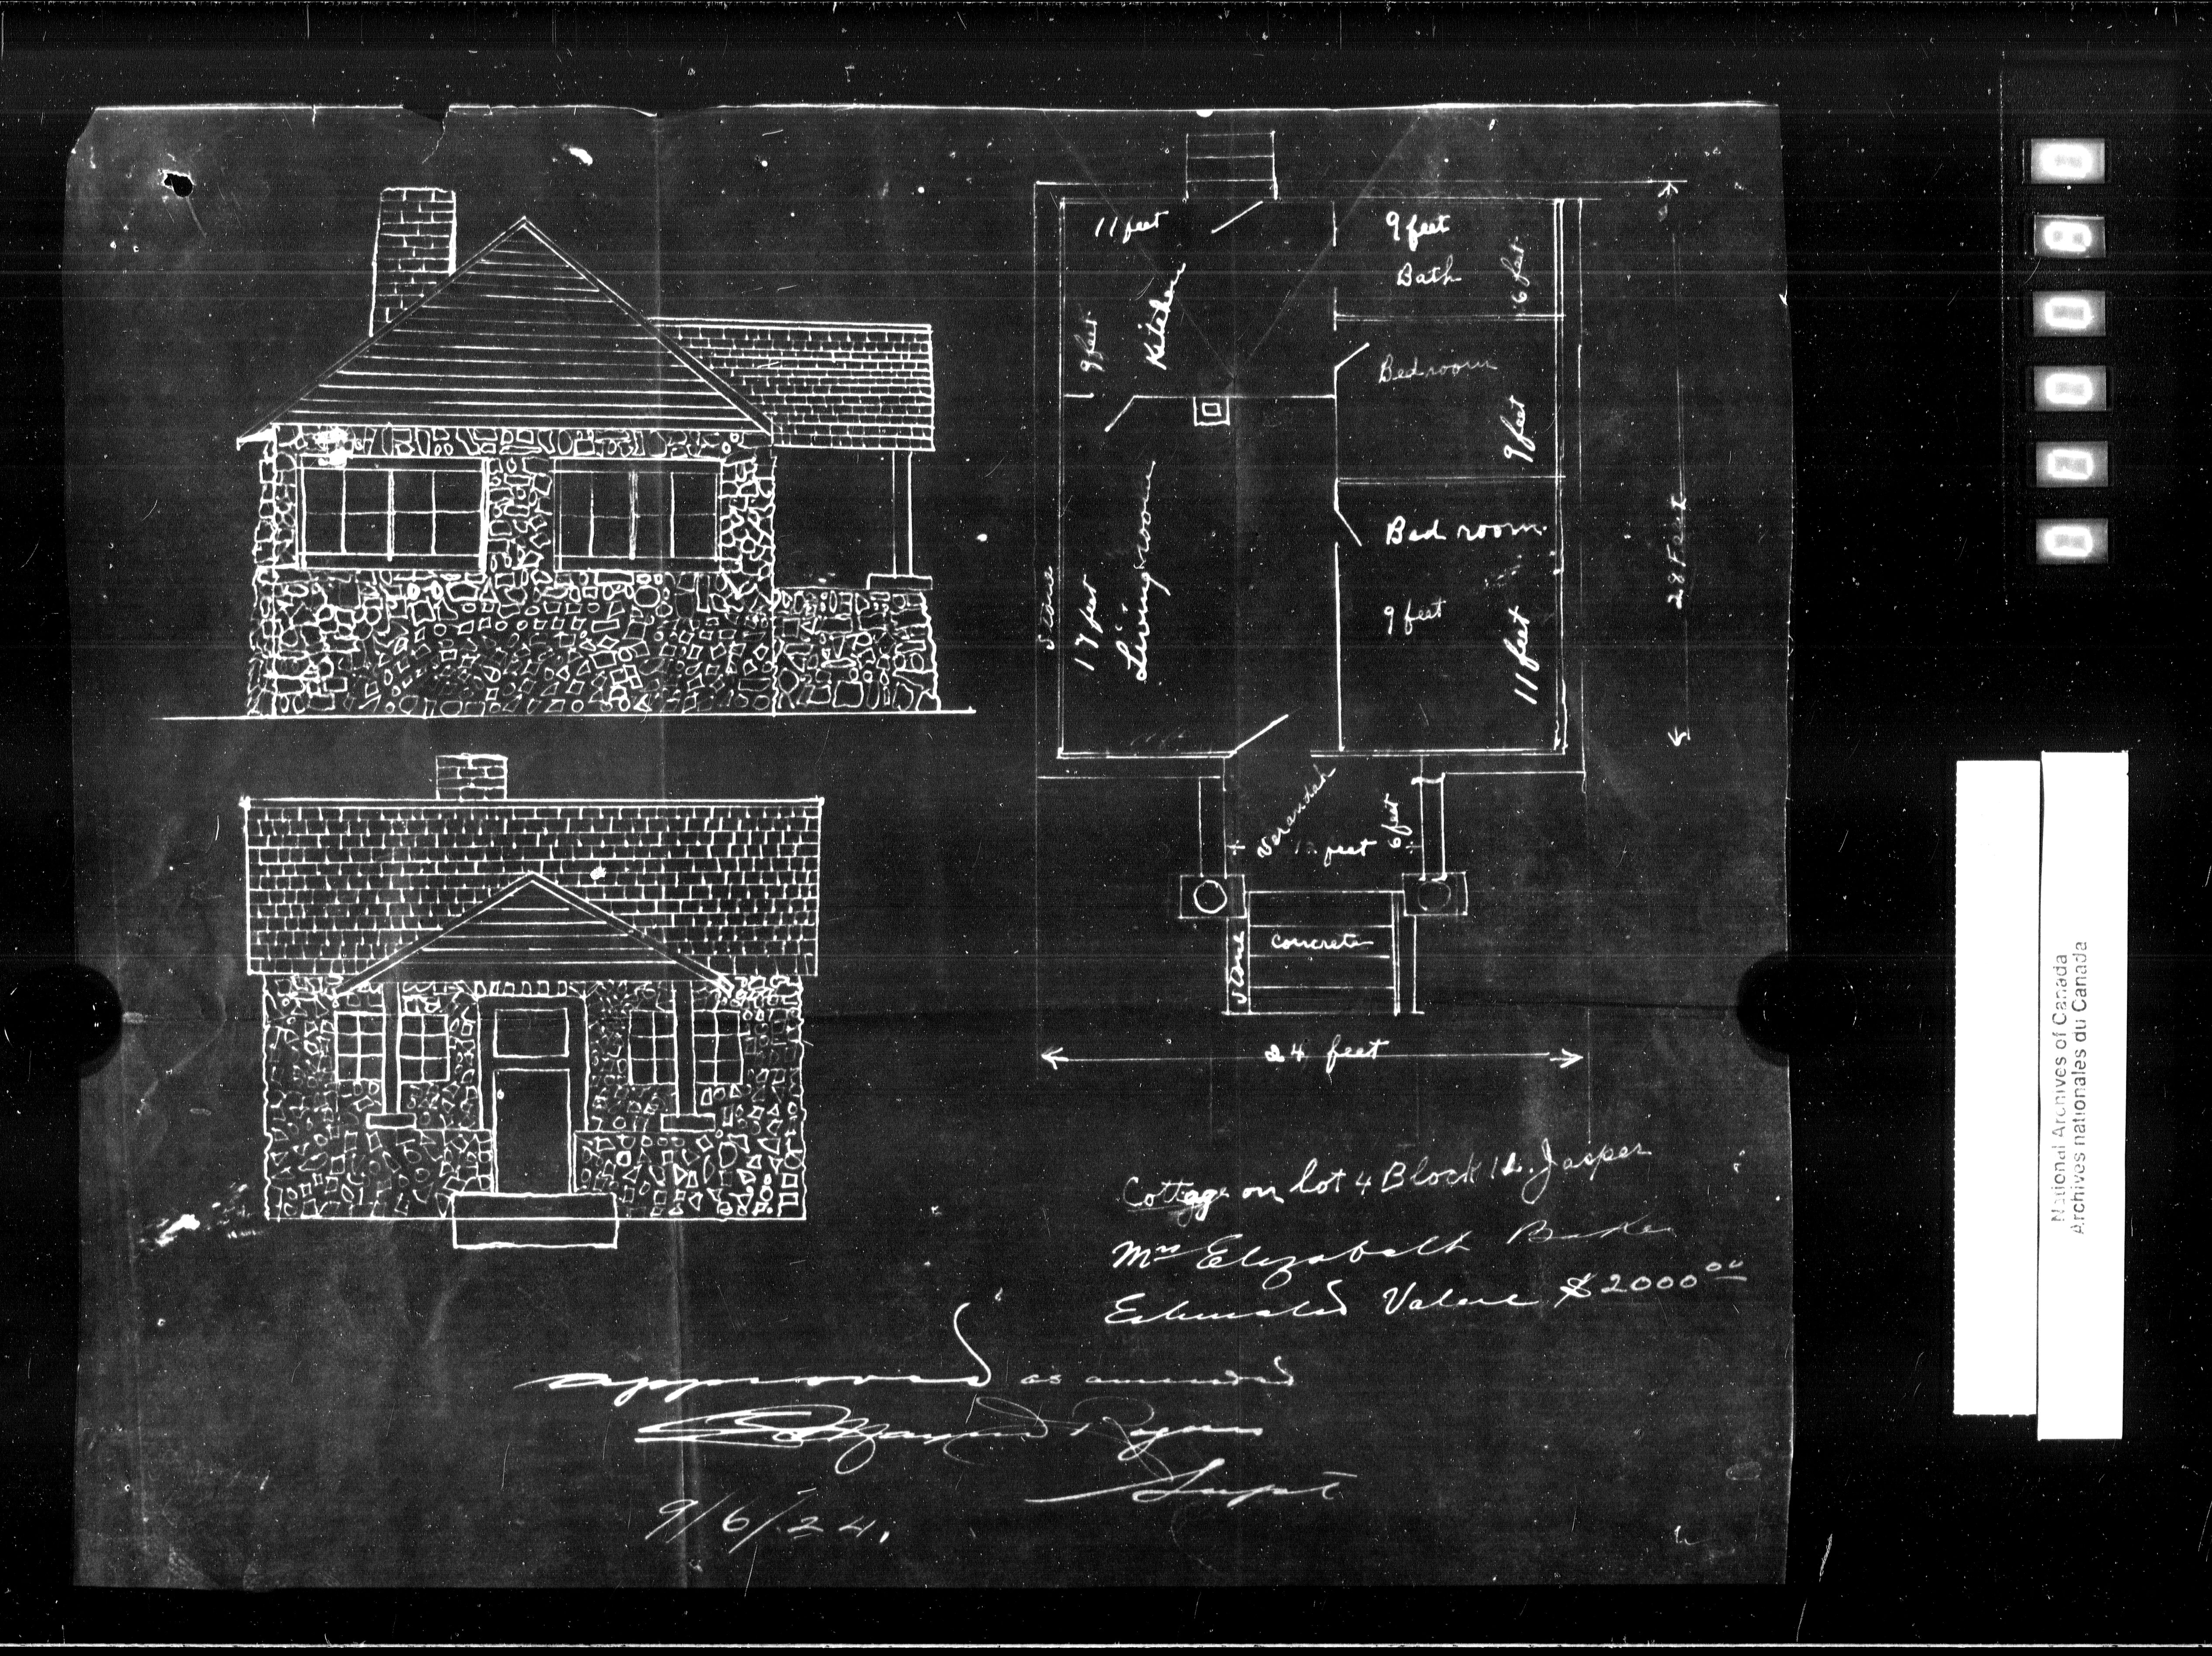 11 feet
9 feet
Bath
6 feet
9 feet
Kitchen
Bedroom
9 feet
Stone
17 feet
Livingroom
Bed room
9 feet
11 feet
28 Feet
Verandah
12 feet
6 feet
Stone
Concrete
24 feet
Cottage on Lot 4 Block 12. Jasper
Mrs Elizabeth
Estimated Value $2000.00
approved as amended
Rogers
Supt
9/6/24.
National Archives of Canada
Archives nationales du Canada
0
0
0
0
0
0